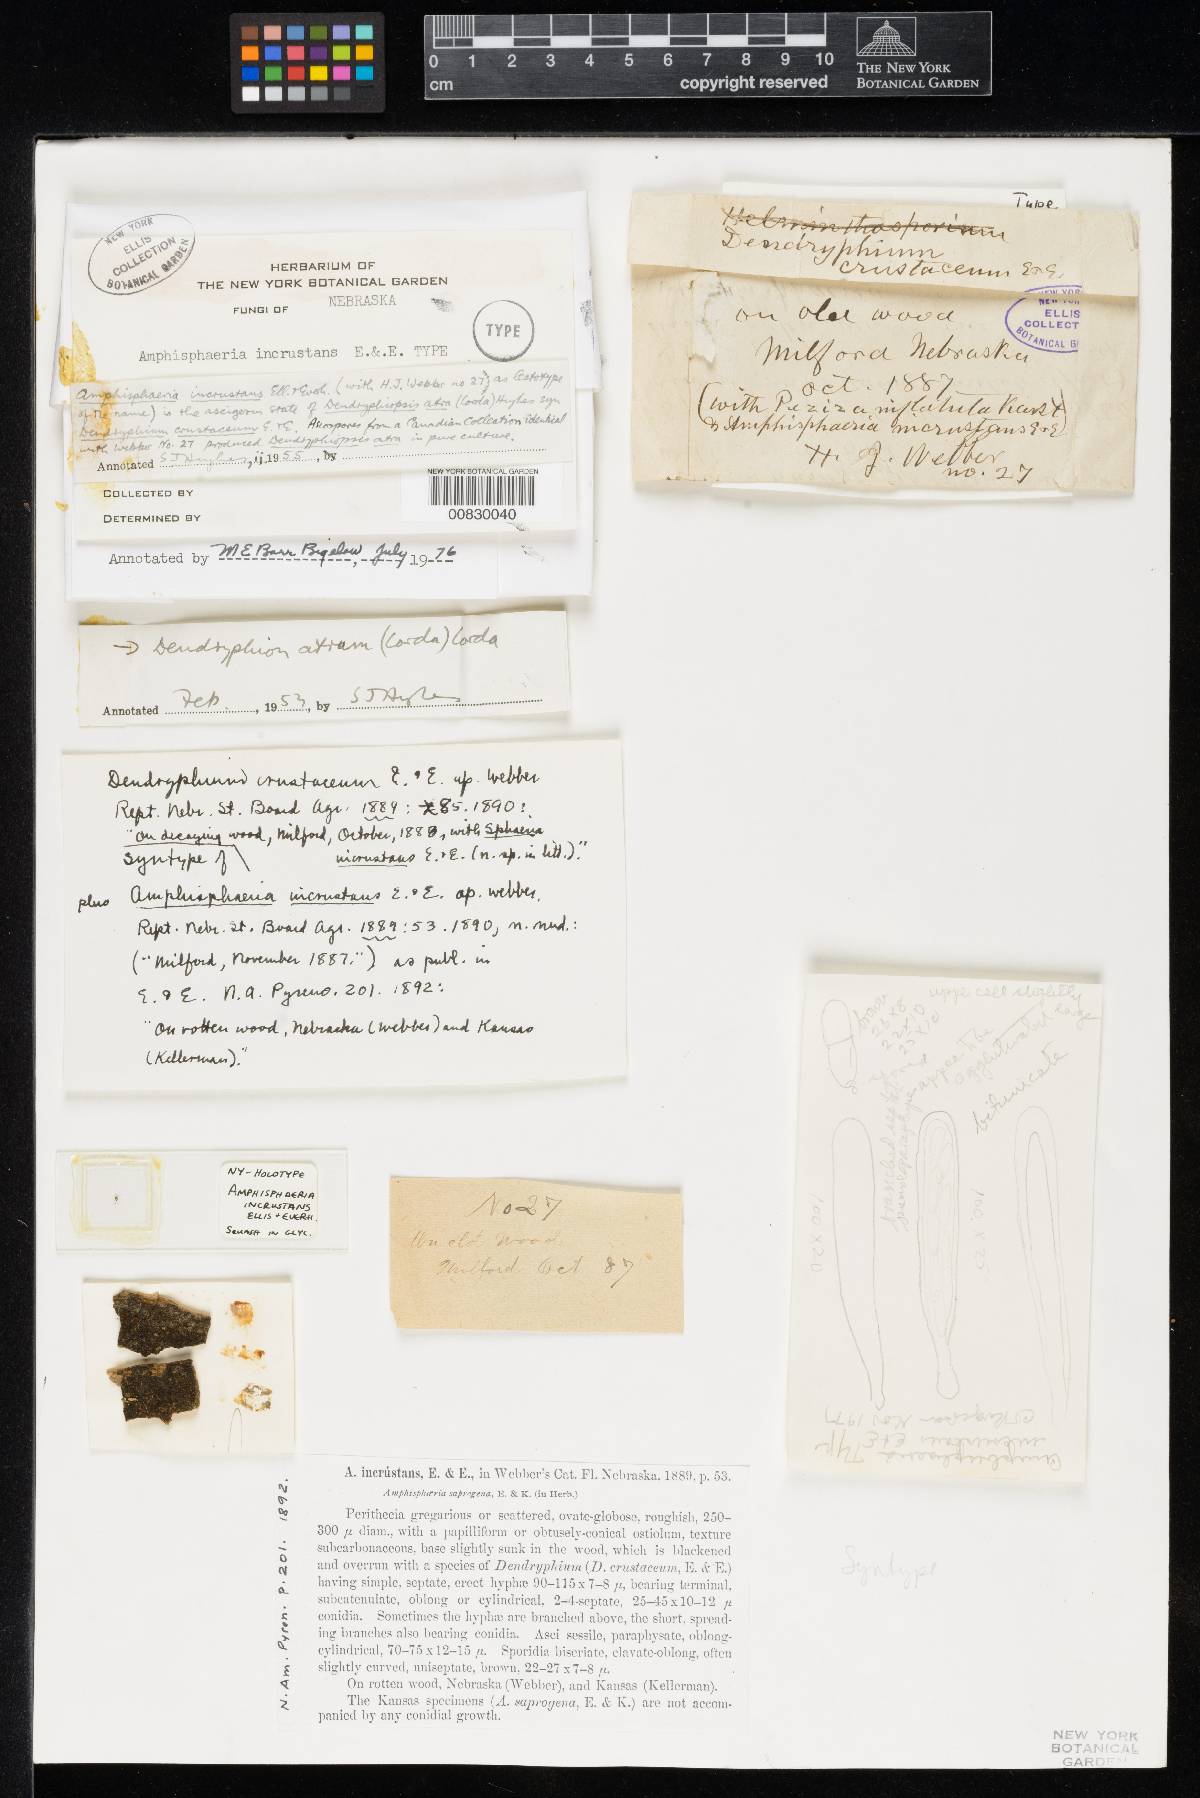 0 1 2 3 4 5 6 7 8 9 10
cm
copyright reserved
THE NEW YORK
BOTANICAL GARDEN
NEW YORK
ELLIS
COLLECTION
BOTANICAL GARDEN
HERBARIUM OF
THE NEW YORK BOTANICAL GARDEN
FUNGI OF NEBRASKA
TYPE
Amphisphaeria incrustans E.&.E. TYPE
Amphisphaeria incrustans Ell. & Everh. (with H.J. Webber no 27) as lectotype
of the name) is the ascigerous state of Dendryphiopsis atra (Corda) Hughes syn
Dendryphium crustaceum E. & E. Ascospores from a Canadian Collection identical
with Webber No. 27 produced Dendryphiopsis atra in pure culture.
Annotated S J Hughes, ij, 1955, by
COLLECTED BY
DETERMINED BY
NEW YORK BOTANICAL GARDEN
00830040
Annotated by M E Barr Bigelow, July 1976
→ Dendryphion atrum (Corda) Corda
Annotated Feb., 1953, by S J Hughes
Dendryphium crustaceum E. & E. ap. Webber
Rept. Nebr. St. Board Agr. 1889: 85. 1890:
"On decaying wood, Milford, October, 188, with Sphaeria
syntype of \ incrustans E. & E. (n. sp. in litt.)."
plus Amphisphaeria incrustans E. & E. ap. Webber,
Rept. Nebr. St. Board Agr. 1889: 53. 1890, n. nud.:
("Milford, November 1887.") as publ. in
E. & E. N. A. Pyreno. 201. 1892:
"On rotten wood, Nebraska (Webber) and Kansas
(Kellerman)."
NY-HOLOTYPE
AMPHISPHAERIA
INCRUSTANS
ELLIS + EVERH.
SQUASH IN GLYC.
Type
Helminthosporium
Dendryphium
crustaceum E & E.
NEW YORK
ELLIS
COLLECT
BOTANICAL G
on old wood
Milford Nebraska
Oct. 1887
(with Peziza inflatula Karst
& Amphisphaeria incrustans E & E)
H. J. Webber
no. 27
No 27
On old Wood
Milford Oct 87
brown
25 x 8
22 x 10
25 x 10
upper cell slightly
large
appee to be
agglutinated
bitunicate
branched septate
pseudoparaphyses
100 x 20
110 x 25
Amphisphaeria
incrustans E & E Type
Nov 1977
Syntype
N. Am. Pyren. p. 201. 1892.
A. incrústans, E. & E., in Webber's Cat. Fl. Nebraska. 1889, p. 53.
Amphisphæria saprogena, E. & K. (in Herb.)
Perithecia gregarious or scattered, ovate-globose, roughish, 250–
300 µ diam., with a papilliform or obtusely-conical ostiolum, texture
subcarbonaceous, base slightly sunk in the wood, which is blackened
and overrun with a species of Dendryphium (D. crustaceum, E. & E.)
having simple, septate, erect hyphæ 90–115 x 7–8 µ, bearing terminal,
subcatenulate, oblong or cylindrical, 2–4-septate, 25–45 x 10–12 µ
conidia. Sometimes the hyphæ are branched above, the short, spread-
ing branches also bearing conidia. Asci sessile, paraphysate, oblong-
cylindrical, 70–75 x 12–15 µ. Sporidia biseriate, clavate-oblong, often
slightly curved, uniseptate, brown, 22–27 x 7–8 µ.
On rotten wood, Nebraska (Webber), and Kansas (Kellerman).
The Kansas specimens (A. saprogena, E. & K.) are not accom-
panied by any conidial growth.
NEW YORK
BOTANICAL
GARDEN